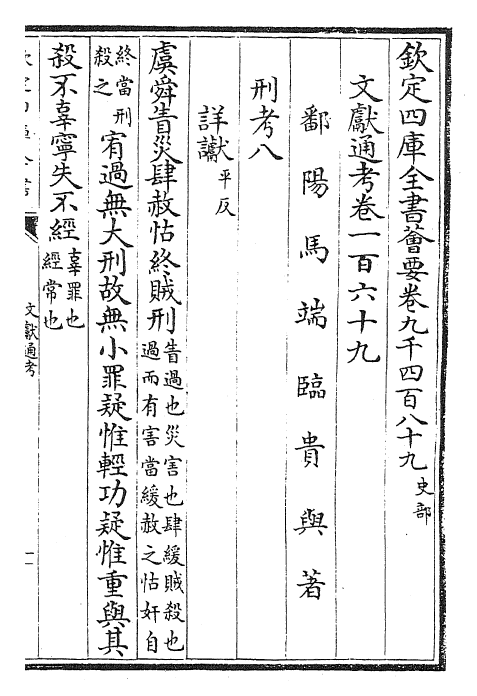 欽定四庫全書薈要卷九千四百八十九 史部
文獻通考卷一百六十九
鄱陽馬端臨貴與著
刑考八
詳讞 平反
虞舜眚災肆赦怙終賊刑 眚過也災害也肆緩賊殺也過而有害當緩赦之怙奸自
終當刑殺之 宥過無大刑故無小罪疑惟輕功疑惟重與其
殺不辜寧失不經 辜罪也經常也
文獻通考